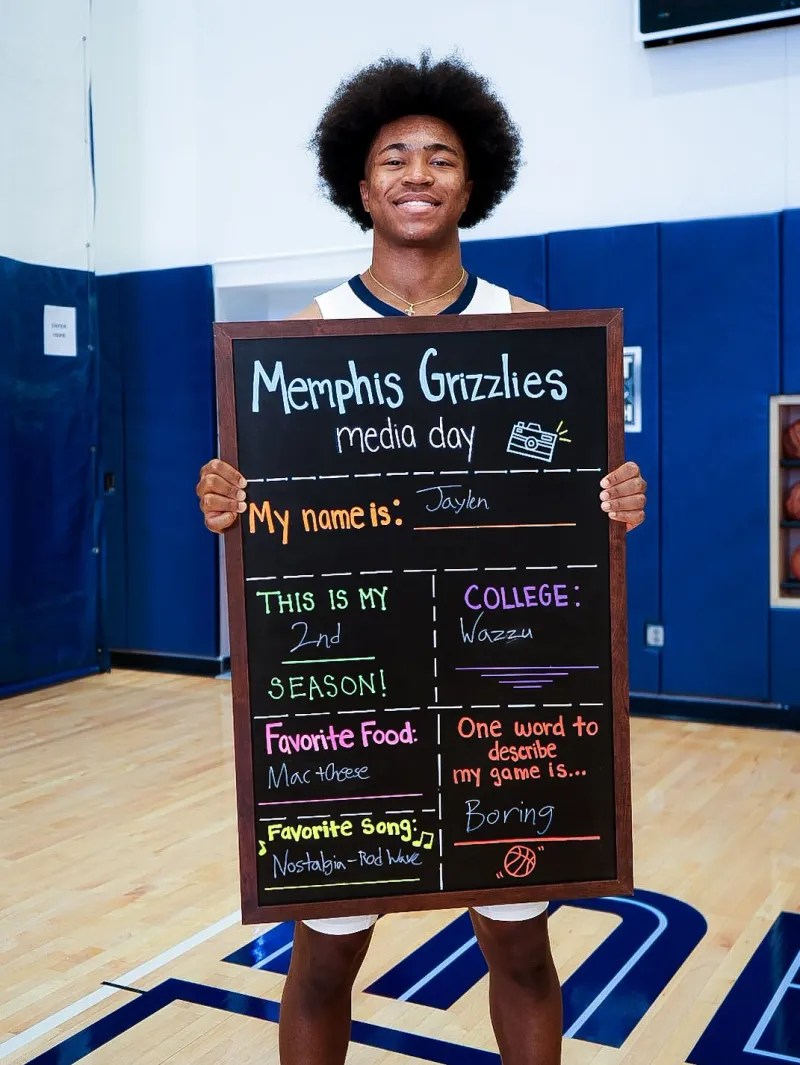 Memphis Grizzlies
media day
My name is: Jaylen
THIS IS MY
2nd
SEASON!
COLLEGE:
Wazzu
Favorite Food:
Mac + Cheese
Favorite Song:
Nostalgia - Rod Wave
One word to
describe
my game is...
Boring